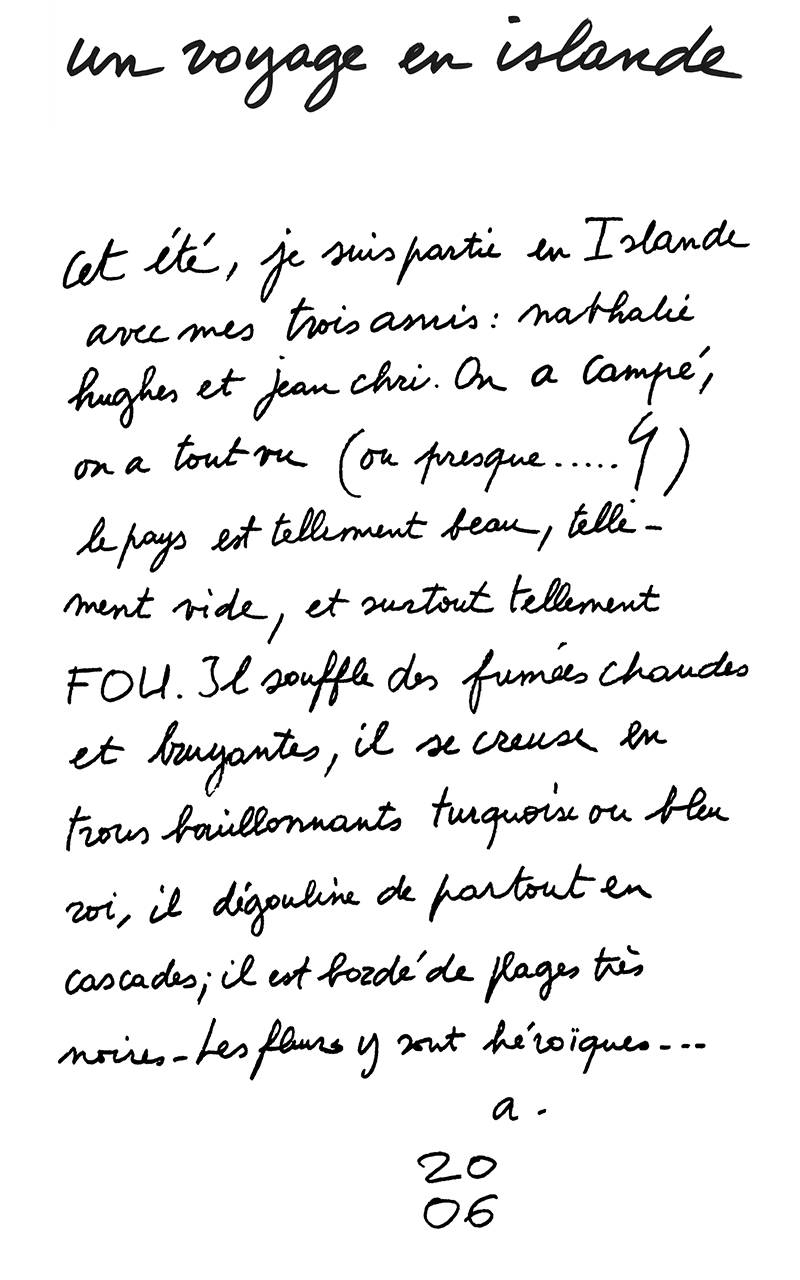 un voyage en islande
Cet été, je suis partie en Islande
avec mes trois amis : nathalie
hughes et jean chri. On a campé,
on a tout vu (ou presque.....)
le pays est tellement beau, telle-
ment vide, et surtout tellement
FOU. Il souffle des fumées chaudes
et bruyantes, il se creuse en
trous bouillonnants turquoise ou bleu
roi, il dégouline de partout en
cascades; il est bordé de plages très
noires - Les fleurs y sont héroïques ---
a.
20
06